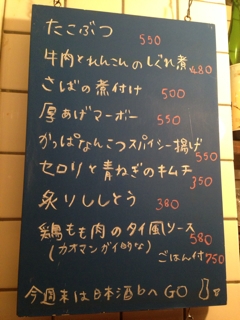 たこぶつ 550
牛肉とれんこんのしぐれ煮 480
さばの煮付け 500
厚あげマーボー 550
かっぱなんこつスパイシー揚げ 550
セロリと青ねぎのキムチ 350
炙りししとう 380
鶏もも肉のタイ風ソース 580
(カオマンガイ的な) ごはん付 750
今週末は日本酒 へ GO